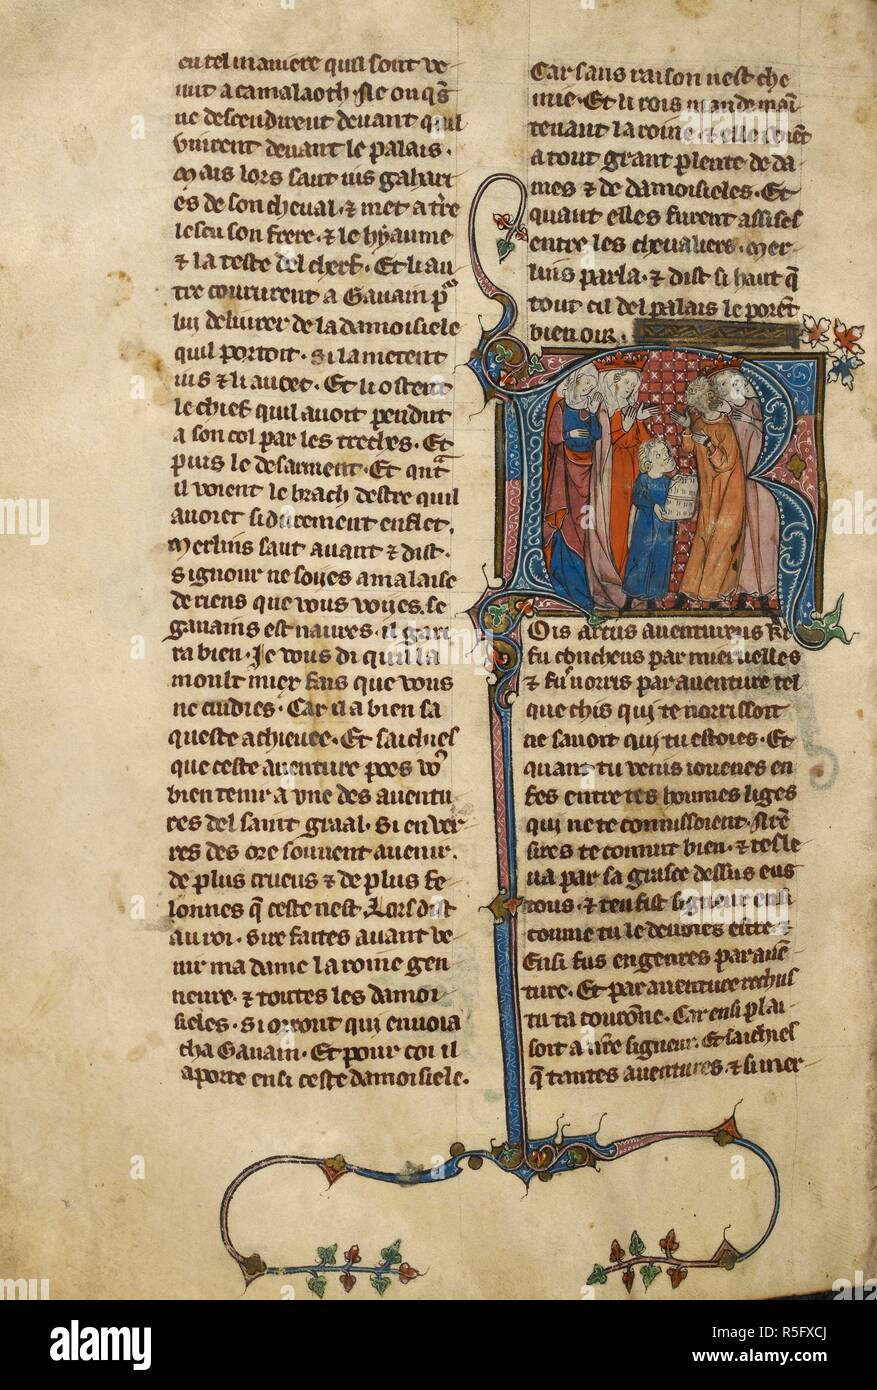 en tel maniere quil sont ve
nut a camalaoth. Ne onq̃s
ne descendirent devant quil
vinrent devant le palais.
Mais lors saut ius gahari
es de son cheval. ⁊ met a t're
lescu son frere. ⁊ le hyaume
⁊ la teste del cherf. Et li au
tre coururent a Gauain p
lui deliurer de la damoisiele
quil portoit. si la metent
ius ⁊ li autet. Et li ostent
le chief quil auoit pendut
a son col par les treches. Et
puis le desarment. Et qñt
il voient le brach destre quil
auoit si durement enflet.
Merlins saut auant ⁊ dist.
Signour ne soijes a malaise
de riens que vous voijes. se
Gauains est naures. il gari
ra bien. Je vous di quil la
moult miex fais que vous
ne cuidies. Car il a bien sa
queste achieuee. Et saichies
que ceste auenture poes vo9
bien tenir a vne des auentu
res del saint graal. Si en ver
res des ore souuent auenir.
de plus crueus ⁊ de plus fe
lonnes q̃ ceste nest. Lors dist
au roi. Sire faites auant ve
nir ma dame la roine gen
neure. ⁊ toutes les damoi
sieles. Si orront qui enuoia
cha Gauain. Et pour coi il
aporte ensi ceste damoisiele.
Car sans raison nest che
mie. Et li rois manda
tenant la roine. ⁊ elle
a tout grant plente de da
mes ⁊ de damoisieles. Et
quant elles furent assises
entre les cheualiers. Mer
lins parla. ⁊ dist si haut q̃
tout cil del palais le porẽt
bien oir.
Rois artus auentureus ki
fu concheus par meruelles
⁊ fus norris par auenture tel
que chis qui te norrissoit
ne sauoit qui tu estoies. Et
quant tu venis iouenes en
fes entre tes houmes liges
qui ne te connissoient. Nr̃e
sires te connut bien. ⁊ tesle
ua par sa grasce dessus eus
tous. ⁊ ten fist signeur ensi
coume tu le deuoies estre
Ensi fus engenres par auẽ
ture. Et par auenture rechus
tu ta courõne. Car ensi plai
soit a nr̃e signeur. Et saichies
q̃ tantes auentures. ⁊ si mer
alamy
Image ID: R5FXCJ
www.alamy.com